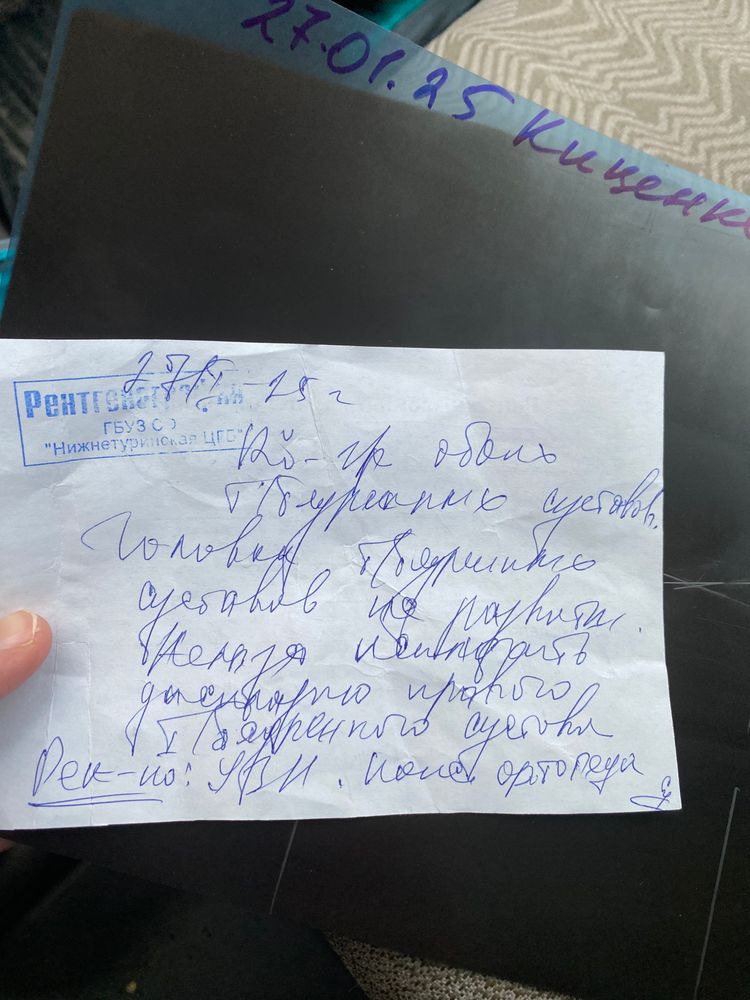 27.01.25 Киценко
27/I-25 г
Рентгенография
ГБУЗ СО
"Нижнетуринская ЦГБ"
R-гр обоих
т/бедренных суставов.
Головки т/бедренных
суставов не развиты.
Нельзя исключить
дисплазию правого
т/бедренного сустава
Рек-но: УЗИ. Конс. ортопеда